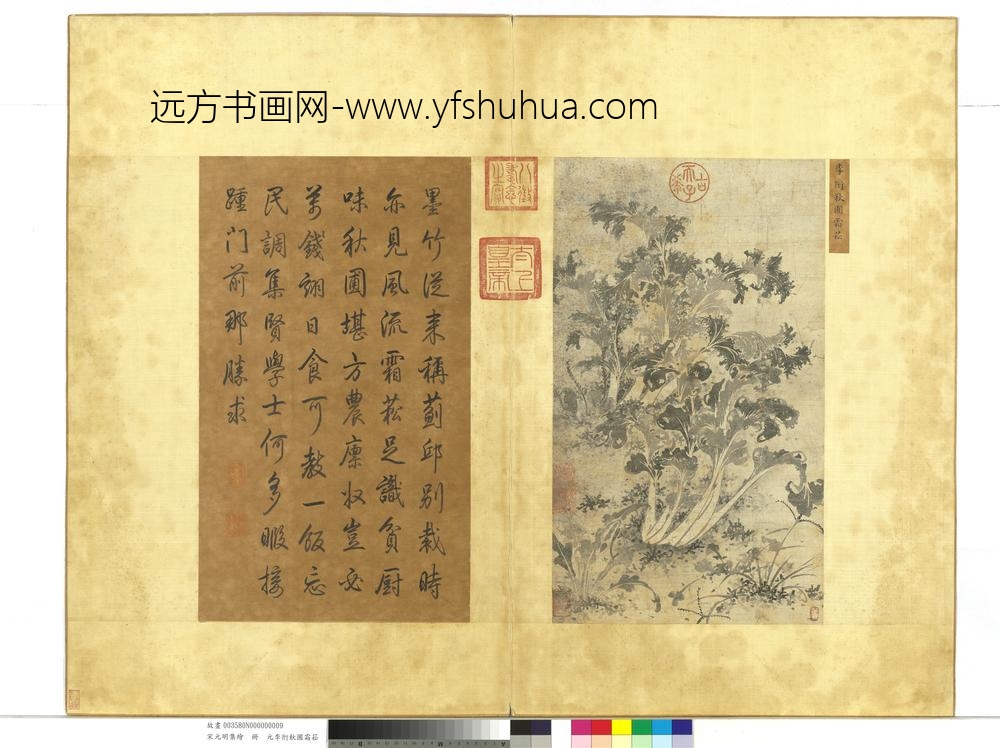 远方书画网-www.yfshuhua.com
李衎秋圃霜菘
古希天子
八徵耄念之寶
太上皇帝
墨竹從来稱薊邱别栽時
亦見風流霜菘足識貧厨
味秋圃堪方農廪収豈必
萬錢翊日食可教一飯忘
民調集賢學士何多暇接
踵門前那勝求
故畫 003580N000000009
宋元明集繪 冊 元李衎秋圃霜菘